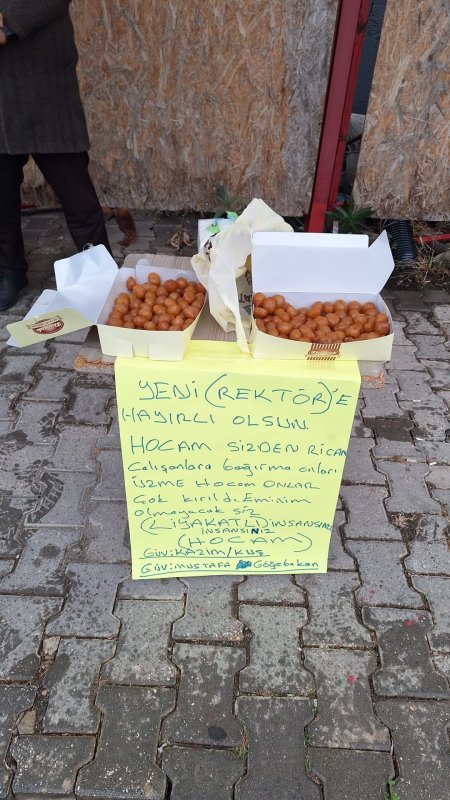 YENİ (REKTÖR)'E
HAYIRLI OLSUN.
HOCAM SİZDEN RİCAM
Çalışanlara bağırma onları
ÜZME HOCAM ONLAR
Çok kırıldı. Eminim
olmayacak siz
(LİYAKATLI) İNSANSINIZ
İNSANSINIZ
(HOCAM)
GÜVİ:KAZIM/KUŞ
GÜVİ:MUSTAFA Göğebakan